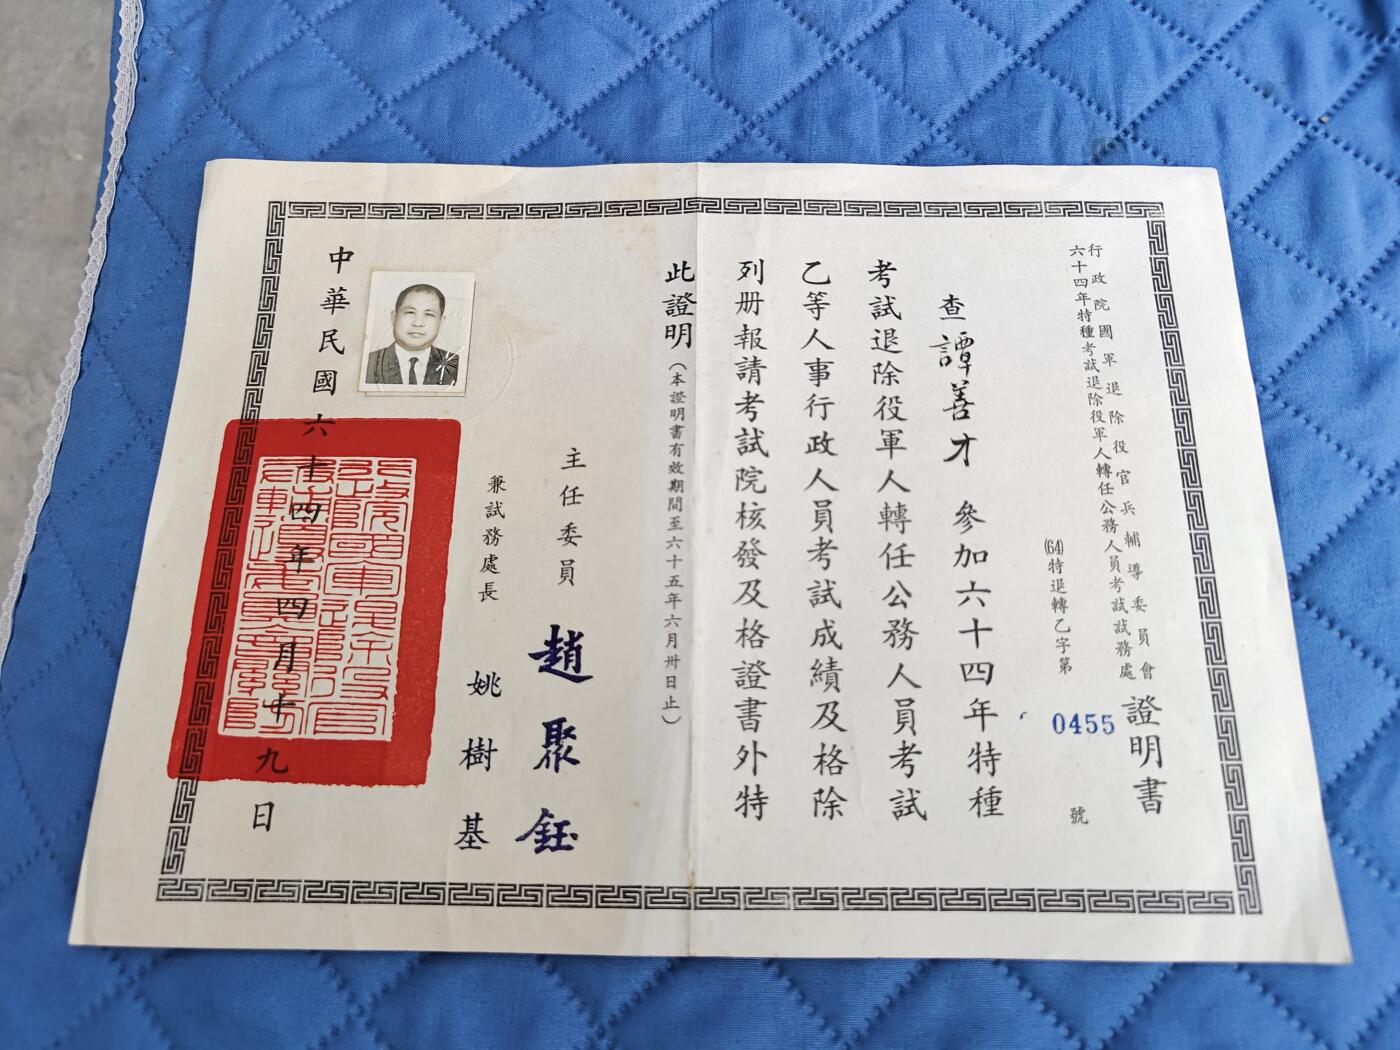 行政院國軍退除役官兵輔導委員會
六十四年特種考試退除役軍人轉任公務人員考試試務處
證明書
(64)特退轉乙字第0455號
查譚善才 參加六十四年特種
考試退除役軍人轉任公務人員考試
乙等人事行政人員考試成績及格除
列册報請考試院核發及格證書外特
此證明(本證明書有效期間至六十五年六月卅日止)
主任委員 趙聚鈺
兼試務處長 姚樹基
中華民國六十四年四月十九日